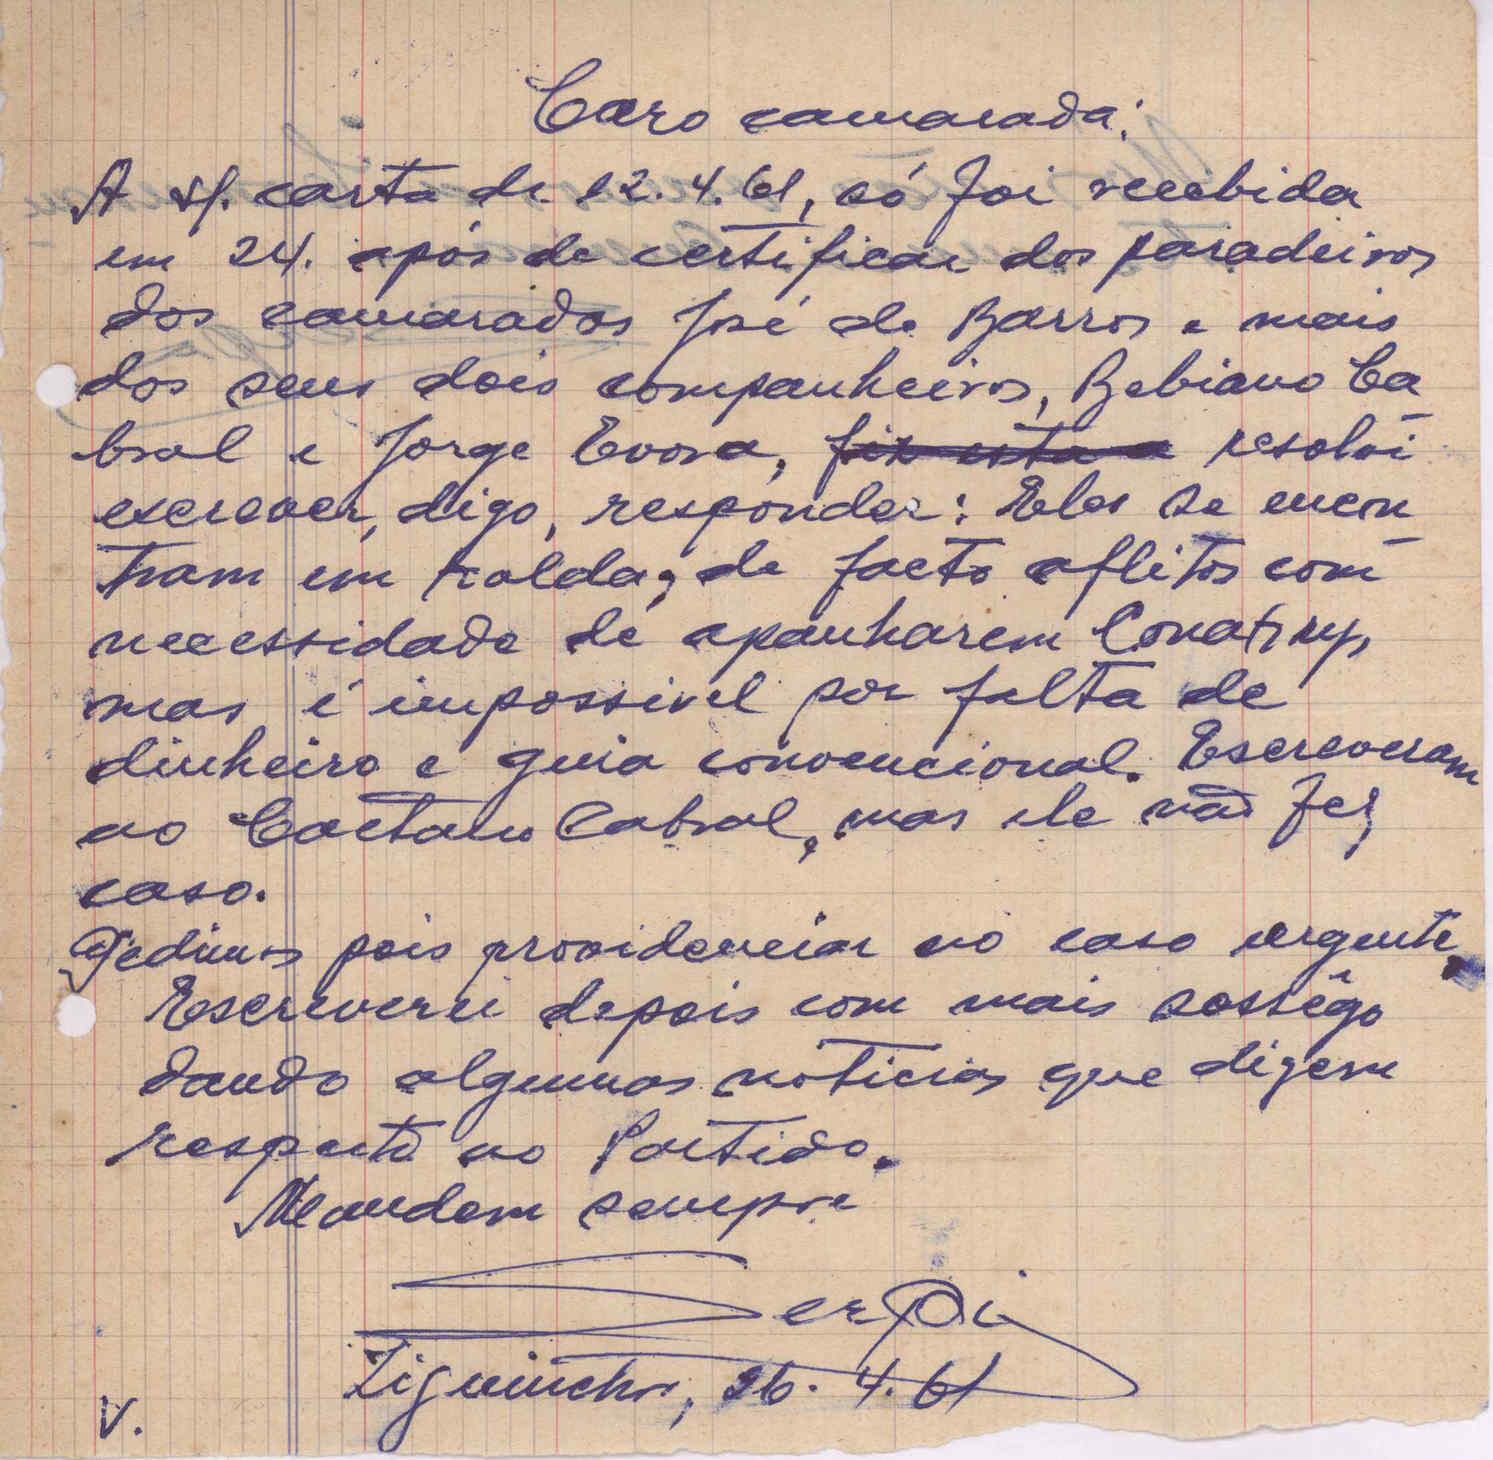 Caro camarada:
A v/. carta de 12.4.61, só foi recebida
em 24. após de certificar dos paradeiros
dos camaradas José de Barros e mais
dos seus dois companheiros, Bebiano Ca
bral e Jorge Evora, fiz esta a resolvi
escrever, digo, responder: Eles se encon
tram em Kolda, de facto aflitos com
necessidade de apanharem Conakry,
mas é impossivel por falta de
dinheiro e guia convencional. Escreveram
ao Caetano Cabral, mas ele não fez
caso.
Pedimos pois providenciar no caso urgente.
Escreverei depois com mais sossêgo
dando algumas noticias que dizem
respeito ao Partido.
Mandem sempre
Ziguinchor, 26.4.61
V.